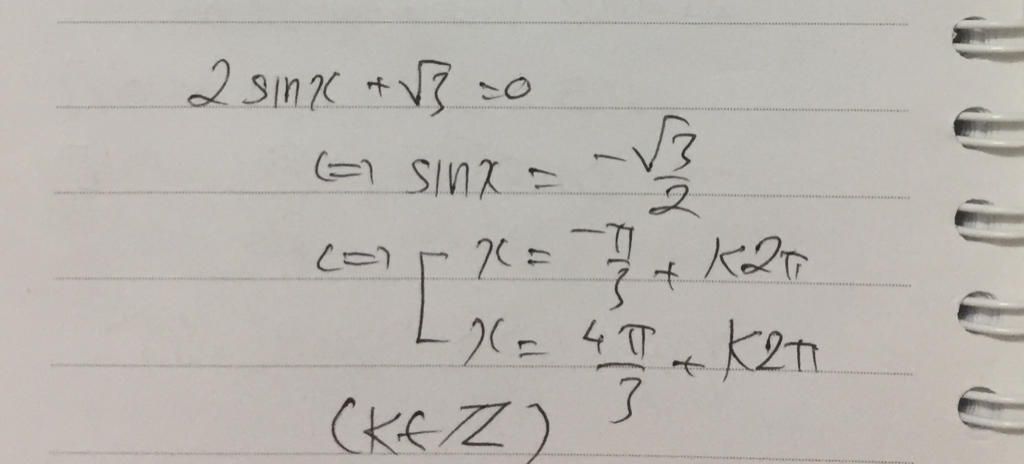 2 sinx + √3 = 0
<=> sinx = -√3/2
<=> [ x = -π/3 + k2π
x = 4π/3 + k2π
(k ∈ ℤ)